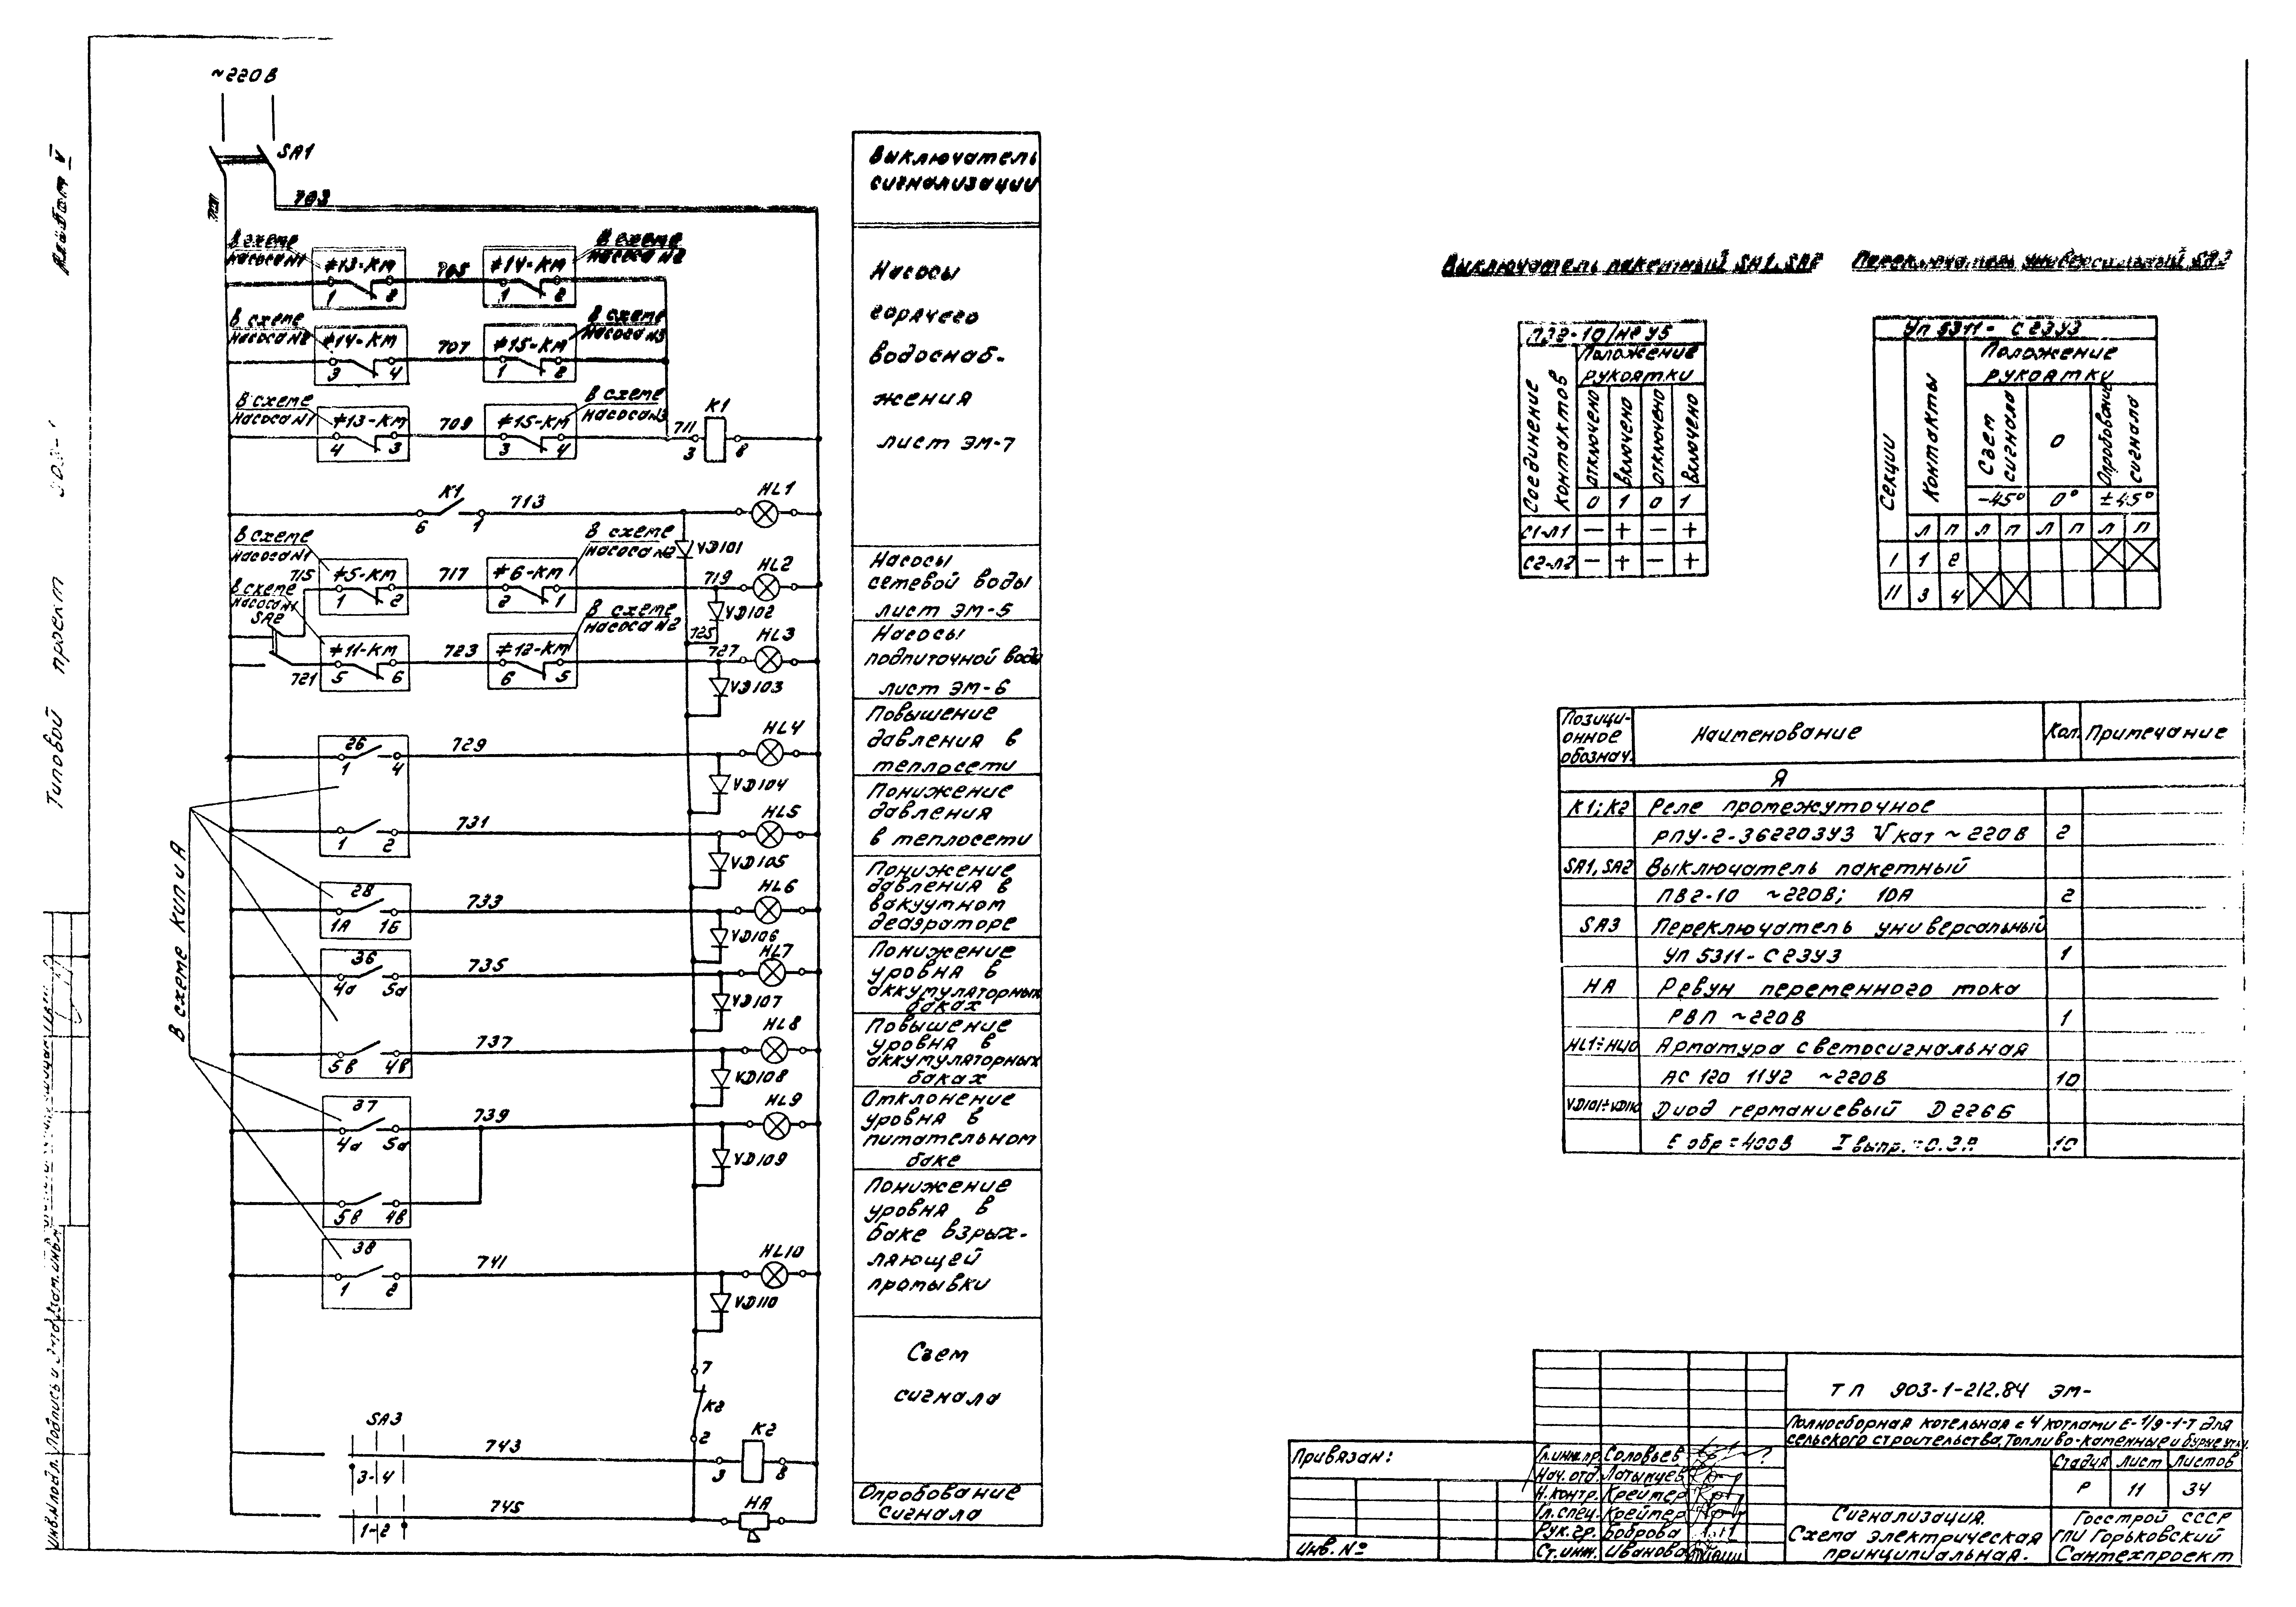 ~220В
SA1
701
703
В схеме
насоса№1
#13-КМ
1 2
705
#14-КМ
1 2
В схеме
насоса №2
В схеме
насоса№2
#14-КМ
3 4
707
#15-КМ
1 2
В схеме
насоса№3
В схеме
насоса№1
#13-КМ
4 3
709
#15-КМ
3 4
В схеме
насоса№3
711
К1
3 8
К1
6 1
713
HL1
VD101
В схеме
насоса№1
715
#5-КМ
1 2
717
#6-КМ
2 1
В схеме
насоса№2
719
HL2
VD102
725
В схеме
насоса№1
SA2
721
#11-КМ
5 6
723
#12-КМ
6 5
В схеме
насоса№2
727
HL3
VD103
26
1 4
729
HL4
VD104
1 2
731
HL5
VD105
28
1А 1Б
733
HL6
VD106
36
4а 5а
735
HL7
VD107
5в 4в
737
HL8
VD108
37
4а 5а
739
HL9
VD109
5в 4в
38
1 2
741
HL10
VD110
В схеме КИП и А
7
К2
2
SA3
3-4
743
К2
3 8
1-2
745
НА
Выключатель
сигнализации
Насосы
горячего
водоснаб-
жения
лист ЭМ-7
Насосы
сетевой воды
лист ЭМ-5
Насосы
подпиточной воды
лист ЭМ-6
Повышение
давления в
теплосети
Понижение
давления
в теплосети
Понижение
давления в
вакуумном
деаэраторе
Понижение
уровня в
аккумуляторных
баках
Повышение
уровня в
аккумуляторных
баках
Отклонение
уровня в
питательном
баке
Понижение
уровня в
баке взрых-
ляющей
промывки
Съем
сигнала
Опробование
сигнала
Выключатель пакетный SA1, SA2
Соединение
контактов
Положение
рукоятки
отключено
включено
отключено
включено
0 1 0 1
С1-Л1 − + − +
С2-Л2 − + − +
Переключатель универсальный SA3
УП 5311- С23У3
Секции
Контакты
Положение
рукоятки
Съем
сигнала
0
Опробование
сигнала
-45° 0° ±45°
Л П Л П Л П Л П
I 1 2
II 3 4
Позици-
онное
обознач. Наименование Кол. Примечание
Я
К1; К2 Реле промежуточное
РПУ-2-36220У3 Uкат ~ 220В 2
SA1, SA2 Выключатель пакетный
ПВ2-10 ~220В; 10А 2
SA3 Переключатель универсальный
УП 5311- С23У3 1
НА Ревун переменного тока
РВП ~220В 1
HL1÷HL10 Арматура светосигнальная
АС 120 11У2 ~220В 10
VD101÷VD110 Диод германиевый Д226Б
Е обр = 400В I выпр. = 0.3А 10
Альбом V
Типовой проект
Инв.№ подл. Подпись и дата Взам.инв.№
ТП 903-1-212.84 ЭМ-
Полносборная котельная с 4 котлами Е-1/9-1-Т для
сельского строительства. Топливо-каменные и бурые угли.
Стадия Лист Листов
Р 11 34
Сигнализация.
Схема электрическая
принципиальная.
Госстрой СССР
ГПИ Горьковский
Сантехпроект
Привязан:
Инв. №
Гл.инж.пр. Соловьев
Нач. отд. Латынцев
Н. контр. Крейтер
Гл. спец. Крейтер
Рук. гр. Боброва
Ст. инж. Иванова